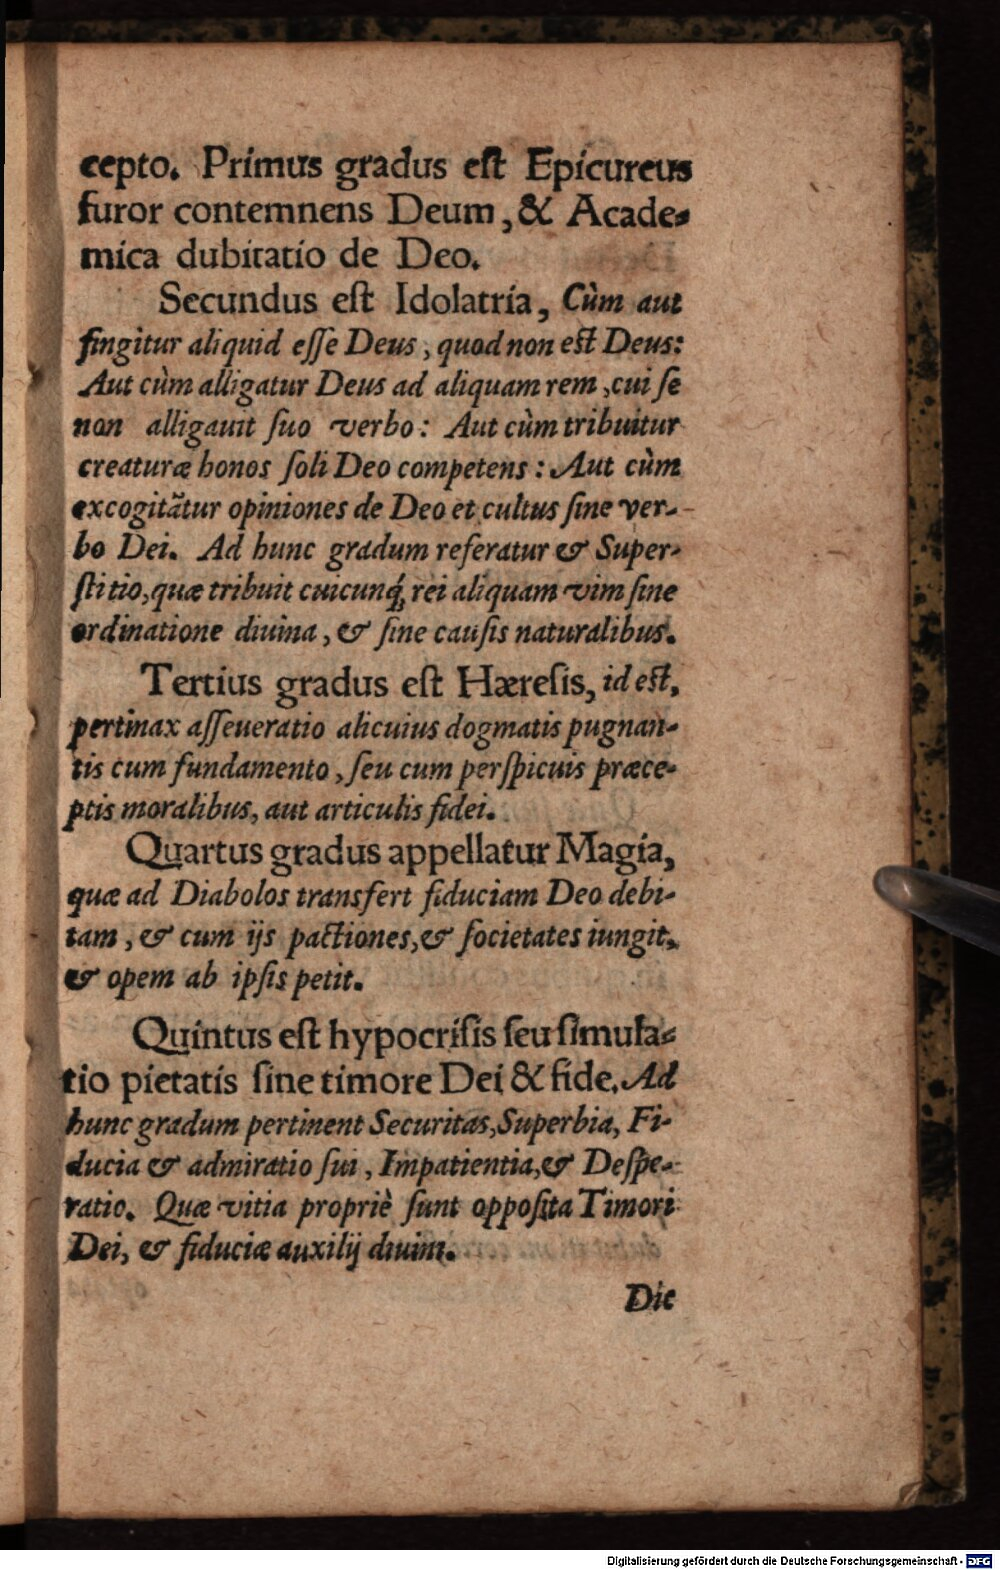 cepto. Primus gradus eſt Epicureus
furor contemnens Deum, & Acade-
mica dubitatio de Deo.
Secundus eſt Idolatria, Cùm aut
fingitur aliquid eſſe Deus, quod non eſt Deus:
Aut cùm alligatur Deus ad aliquam rem, cui ſe
non alligauit ſuo verbo: Aut cùm tribuitur
creaturæ honos ſoli Deo competens: Aut cùm
excogitãtur opiniones de Deo et cultus ſine ver-
bo Dei. Ad hunc gradum referatur & Super-
ſtitio, quæ tribuit cuicunq́; rei aliquam vim ſine
ordinatione diuina, & ſine cauſis naturalibus.
Tertius gradus eſt Hæreſis, id eſt,
pertinax aſſeueratio alicuius dogmatis pugnan-
tis cum fundamento, ſeu cum perſpicuis præce-
ptis moralibus, aut articulis fidei.
Quartus gradus appellatur Magia,
quæ ad Diabolos transfert fiduciam Deo debi-
tam, & cum ijs pactiones, & ſocietates iungit,
& opem ab ipſis petit.
Quintus eſt hypocriſis ſeu ſimula-
tio pietatis ſine timore Dei & fide. Ad
hunc gradum pertinent Securitas, Superbia, Fi-
ducia & admiratio ſui, Impatientia, & Deſpe-
ratio. Quæ vitia propriè ſunt oppoſita Timori
Dei, & fiduciæ auxilij diuini.
Dic
Digitalisierung gefördert durch die Deutsche Forschungsgemeinschaft - DFG